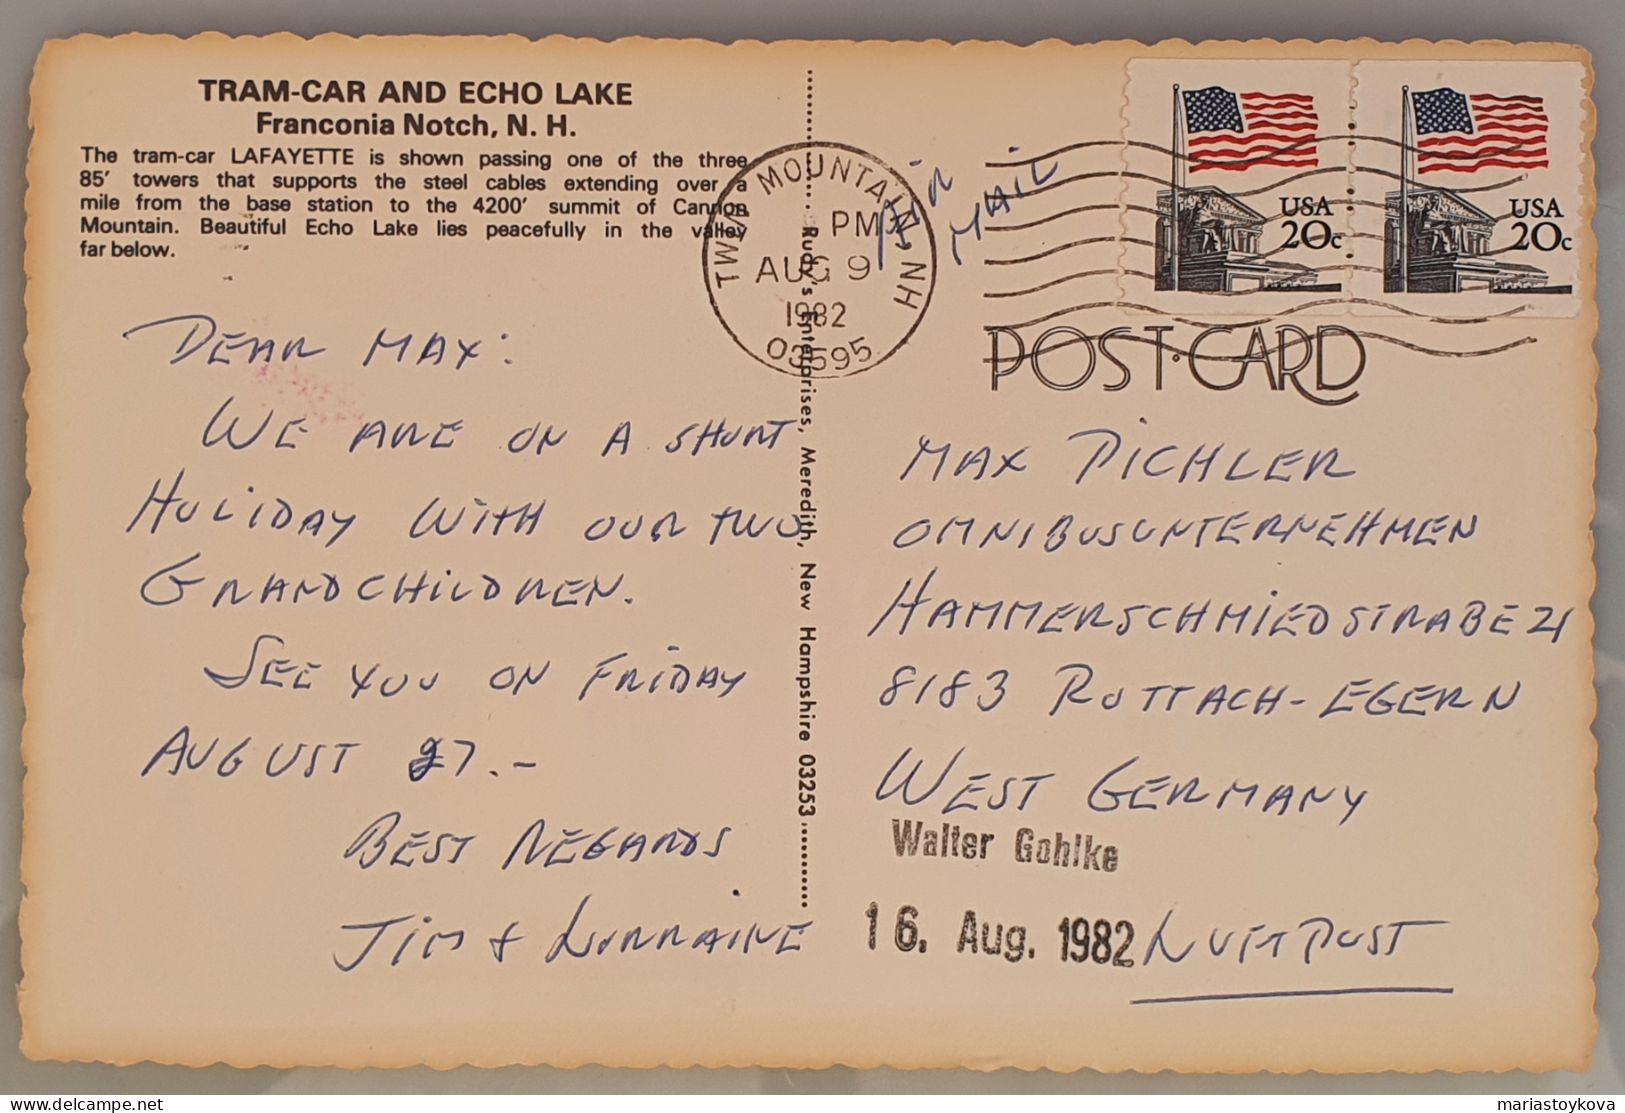 TRAM-CAR AND ECHO LAKE
Franconia Notch, N. H.
The tram-car LAFAYETTE is shown passing one of the three
85' towers that supports the steel cables extending over a
mile from the base station to the 4200' summit of Cannon
Mountain. Beautiful Echo Lake lies peacefully in the valley
far below.
DEAR MAX:
WE ARE ON A SHORT
HOLIDAY WITH OUR TWO
GRANDCHILDREN.
SEE YOU ON FRIDAY
AUGUST 27.-
BEST REGARDS
JIM & LORRAINE
Rudy's Enterprises, Meredith, New Hampshire 03253
TWIN MOUNTAIN NH
PM
AUG 9
1982
03595
AIR
MAIL
USA
20c
USA
20c
POST-CARD
MAX PICHLER
OMNIBUSUNTERNEHMEN
HAMMERSCHMIEDSTRABE 21
8183 ROTTACH-EGERN
WEST GERMANY
Walter Gohlke
16. Aug. 1982
LUFTPOST
delcampe.net
mariastoykova